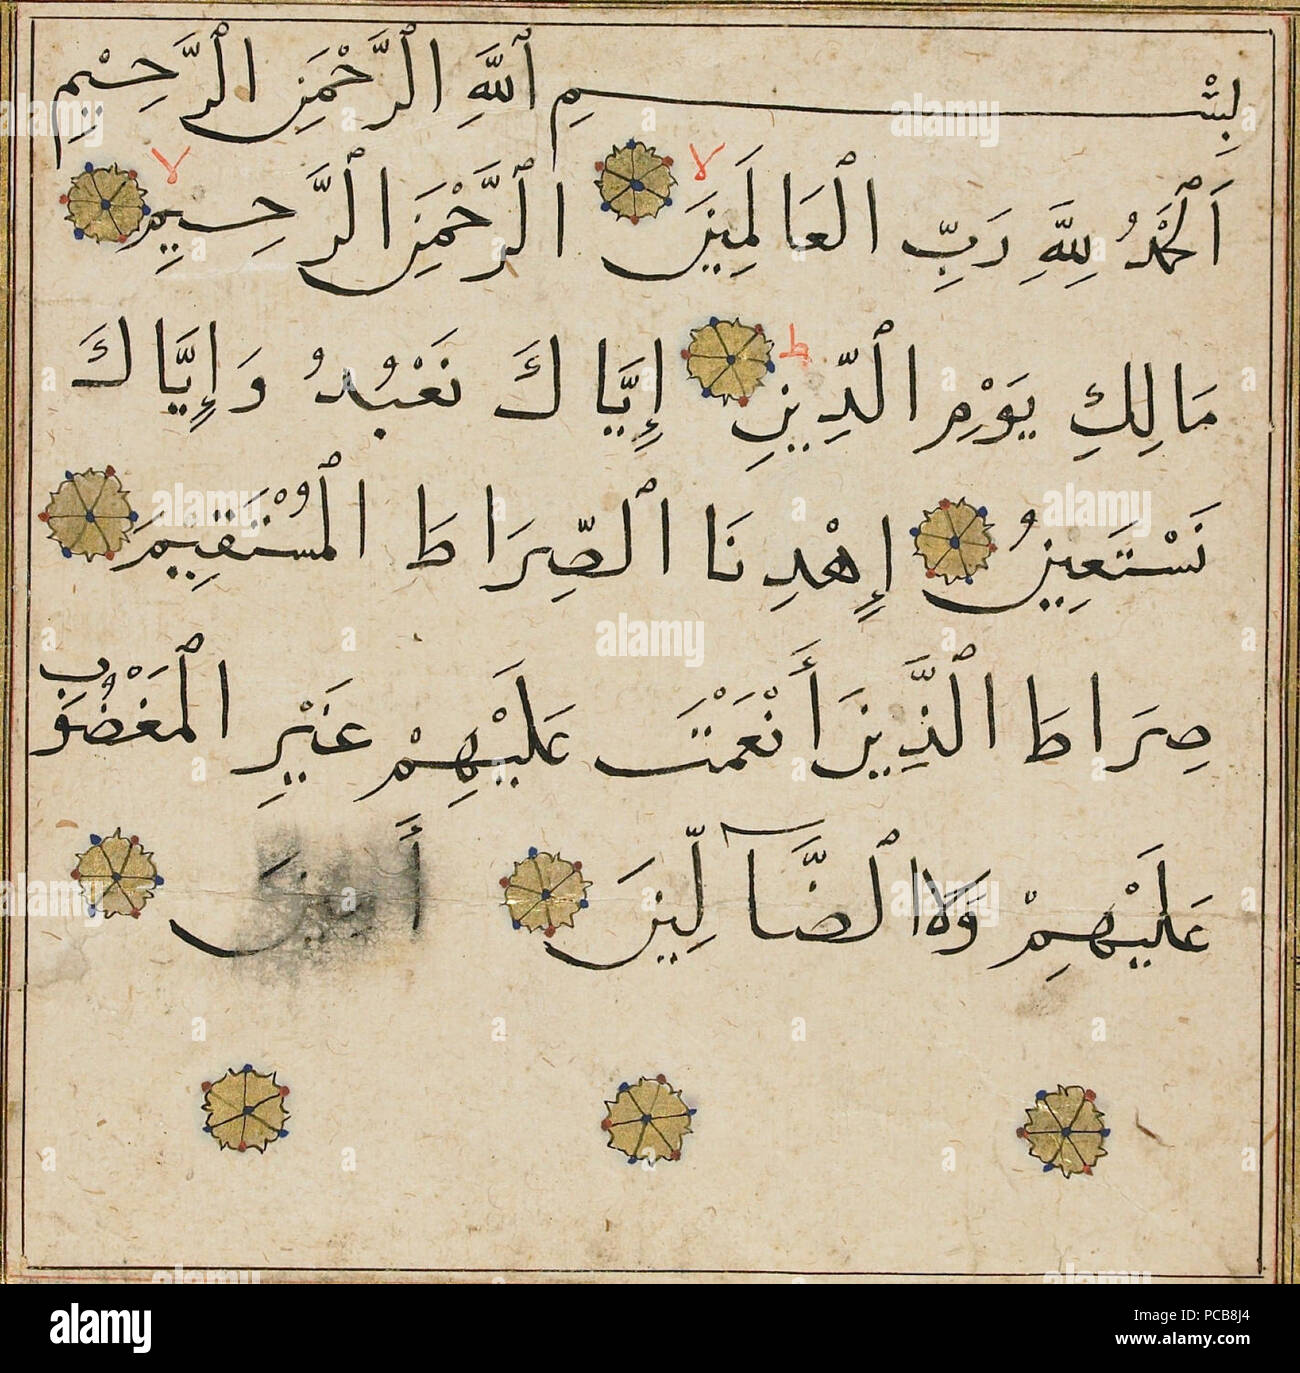 بِسْمِ ٱللَّهِ ٱلرَّحْمَنِ ٱلرَّحِيْمِ
اَلْحَمْدُ لِلَّهِ رَبِّ ٱلْعَالَمِينَ لا ٱلرَّحْمَنِ ٱلرَّحِيمِ لا
مَالِكِ يَوْمِ ٱلدِّينِ ط إِيَّاكَ نَعْبُدُ وَإِيَّاكَ
نَسْتَعِينُ إِهْدِنَا ٱلصِّرَاطَ ٱلْمُسْتَقِيمَ
صِرَاطَ ٱلَّذِينَ أَنْعَمْتَ عَلَيْهِمْ غَيْرِ ٱلْمَغْضُوبِ
عَلَيْهِمْ وَلَا ٱلضَّآلِّينَ أَمِينَ
alamy
PCB8J4
www.alamy.com